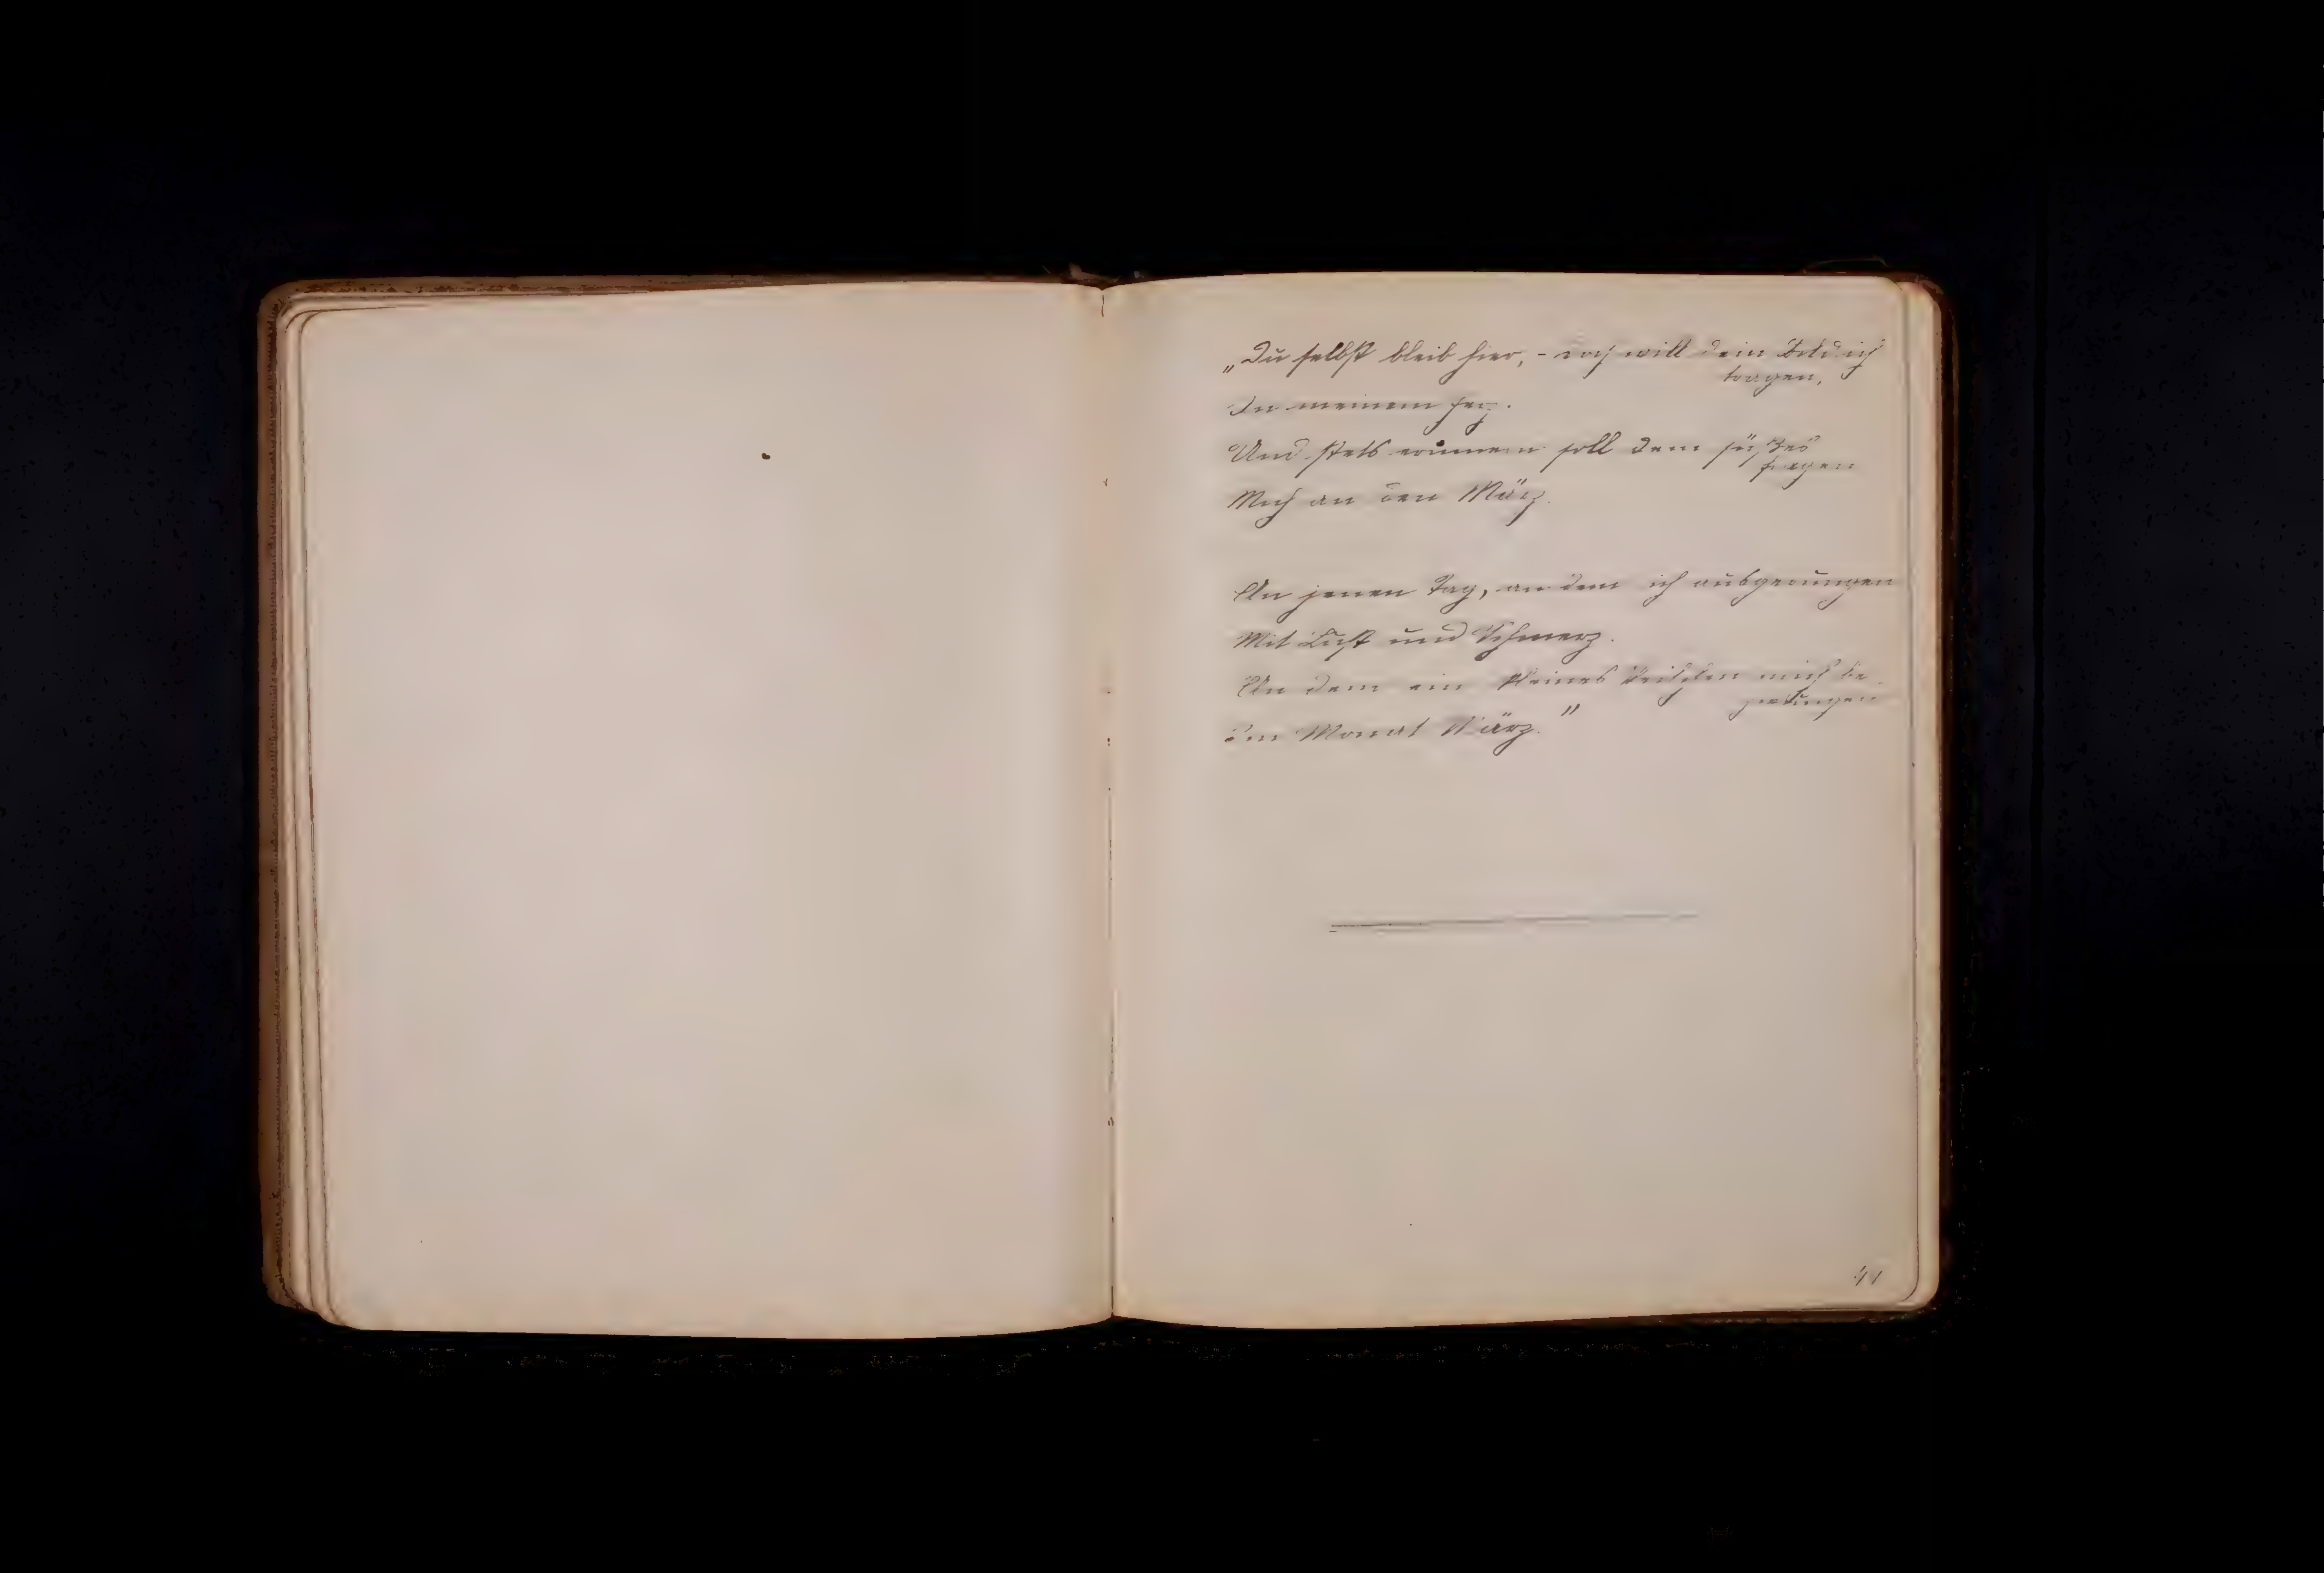 „Du selbst bleib hier, - doch will dein Bild ich
tragen,
In meinem Herz.
Und stets erinnern soll dein süßes
Mich an den März.
An jenen Tag, an dem ich ausgerungen
Mit Lust und Schmerz.
An dem ein kleines Veilchen mich be-
zwungen
Im Monat März."
41